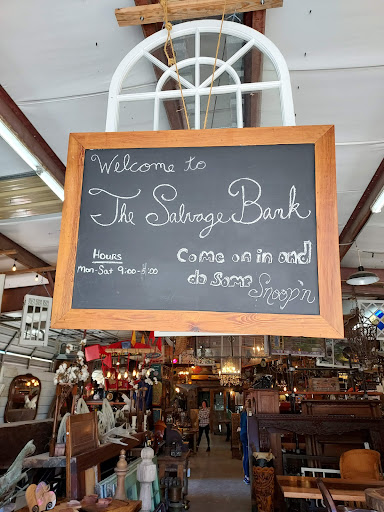 Welcome to
The Salvage Bank
HOURS
Mon-Sat 9:00-5:00
Come on in and
do some Snoop'n